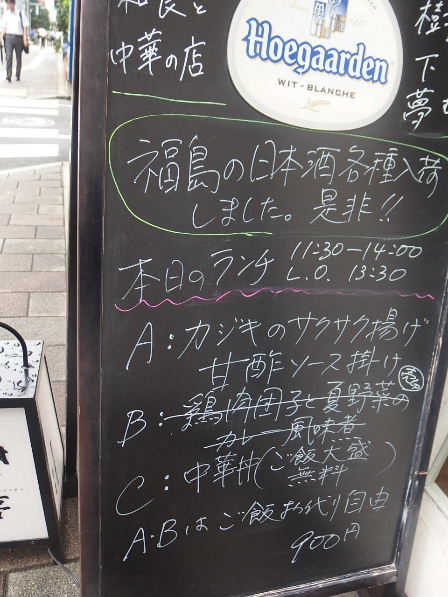 和食と
中華の店
Hoegaarden
WIT-BLANCHE
樹
下
夢
福島の日本酒各種入荷
しました。是非!!
本日のランチ 11:30-14:00
L.O. 13:30
A:カジキのサクサク揚げ
甘酢ソース掛け
B:鶏肉団子と夏野菜の
カレー風味煮
C:中華丼(ご飯大盛
無料)
A・Bはご飯お代り自由
900円